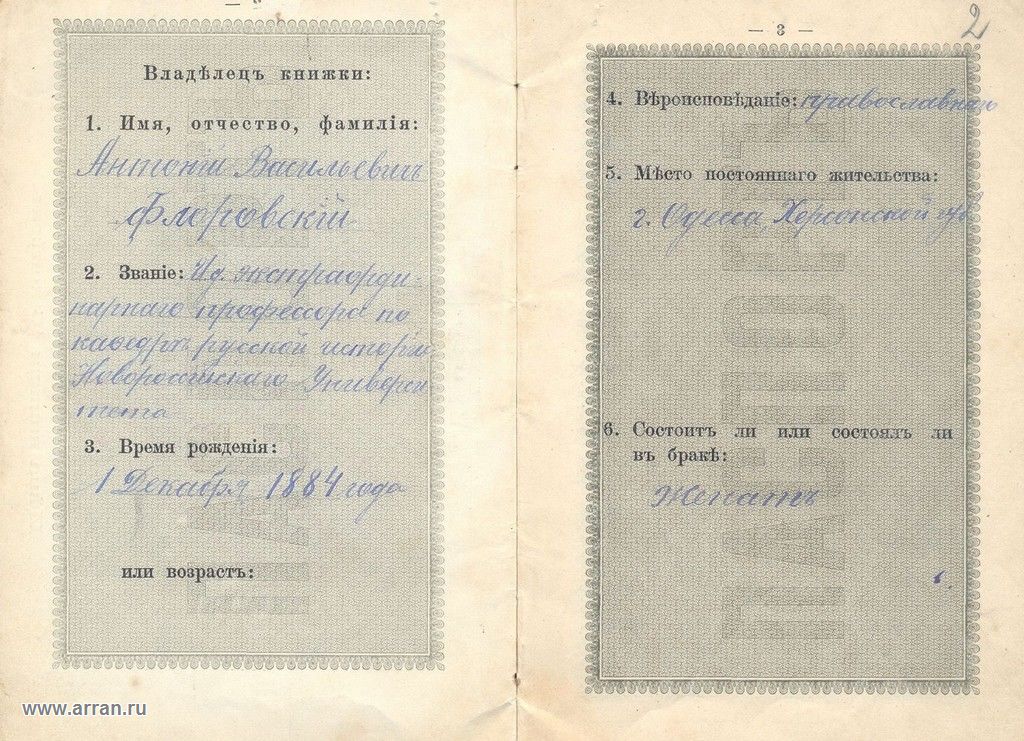 Владѣлецъ книжки:
1. Имя, отчество, фамилія:
Антоній Васильевичъ
Флоровскій
2. Званіе: И.д. экстраорди-
нарнаго профессора по
каѳедрѣ русской исторіи
Новороссійскаго Универси
тета
3. Время рожденія:
1 Декабря 1884 года
или возрастъ:
— 3 —
2
4. Вѣроисповѣданіе: православнаго
5. Мѣсто постояннаго жительства:
г. Одесса, Херсонской губ.
6. Состоитъ ли или состоялъ ли
въ бракѣ:
женатъ
www.arran.ru